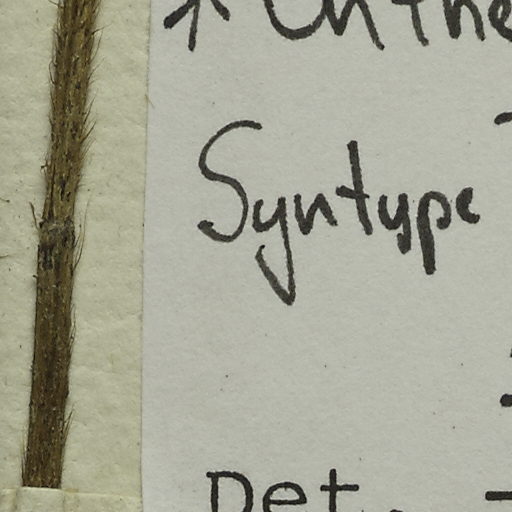 ↑ On the
Syntype
Det.